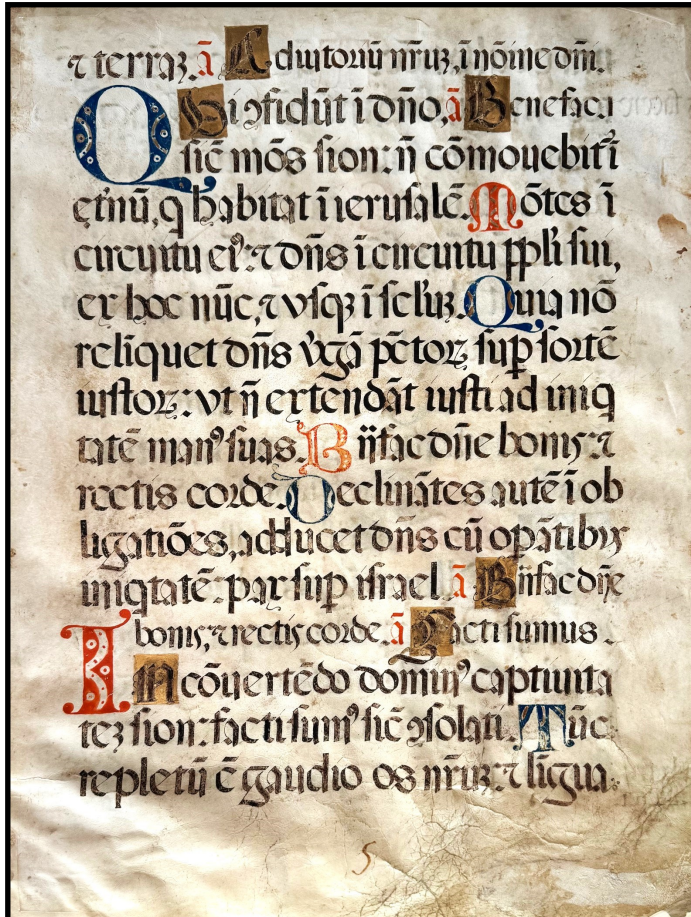 ⁊ terraꝫ. ā Adiutoriū nr̄uꝫ, ī nōīne dn̄i.
Qui ꝯfidūt ī dn̄o, ā Benefaca
sic̄ mōs sion: n̄ cōmouebit᷑ ī
et̄nū, q habitat ī ierusalē. Mōtes ī
circuitu eiꝰ: ⁊ dn̄s ī circuitu ppl̄i sui,
ex hoc nūc, ⁊ vsqꝫ ī sclūꝫ. Quia nō
reliquet dn̄s v̓gā pc̄torꝫ sup sortē
iustorꝫ: vt n̄ extēndāt iusti ad iniq
tatē manꝰ suas. Bn̄fac dn̄e bonis: ⁊
rectis corde. Declinātes autē ī ob
ligatiōes, adducet dn̄s cū opātibus
iniqtatē: pax sup israel. ā Bn̄fac dn̄e
bonis, ⁊ rectis corde. ā Facti sumus.
IN cōuertēdo dominꝰ captiuita
teꝫ sion: facti sumꝰ sic̄ ꝯsolati. Tūc
repletū ē gaudio os nr̄uꝫ: ⁊ līgua.
5